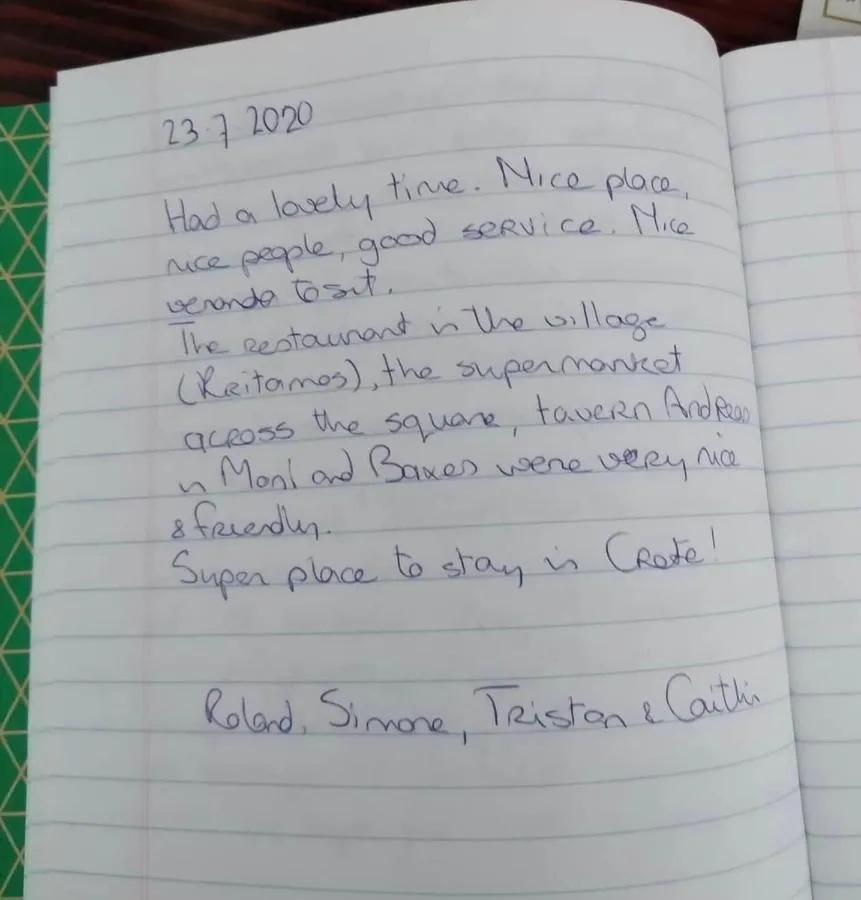 23.7 2020
Had a lovely time. Nice place,
nice people, good service. Nice
veranda to sit.
The restaurant in the village
(Kritamos), the supermarket
across the square, tavern Andreas
in and were very nice
& friendly.
Super place to stay in Crete!
Roland, Simone, Tristan & Caitlin